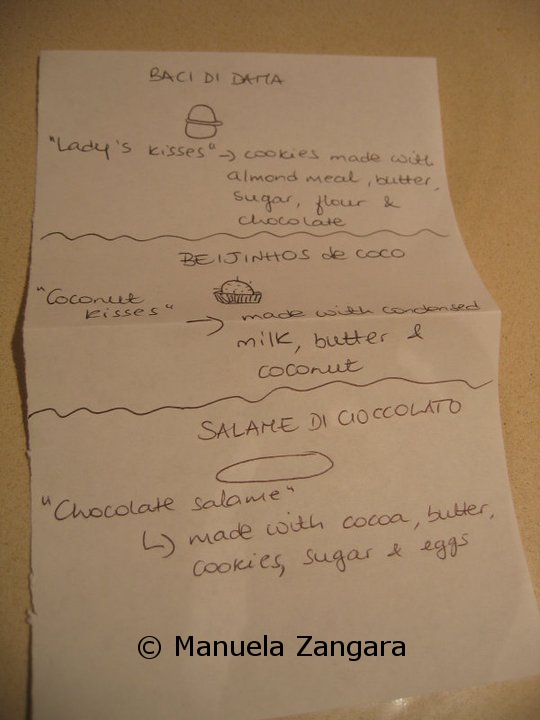 BACI DI DAMA
"Lady's kisses" → cookies made with
almond meal, butter,
sugar, flour &
chocolate
BEIJINHOS de COCO
"Coconut
kisses"
→ made with condensed
milk, butter &
coconut
SALAME DI CIOCCOLATO
"Chocolate salame"
↳ made with cocoa, butter,
cookies, sugar & eggs
© Manuela Zangara